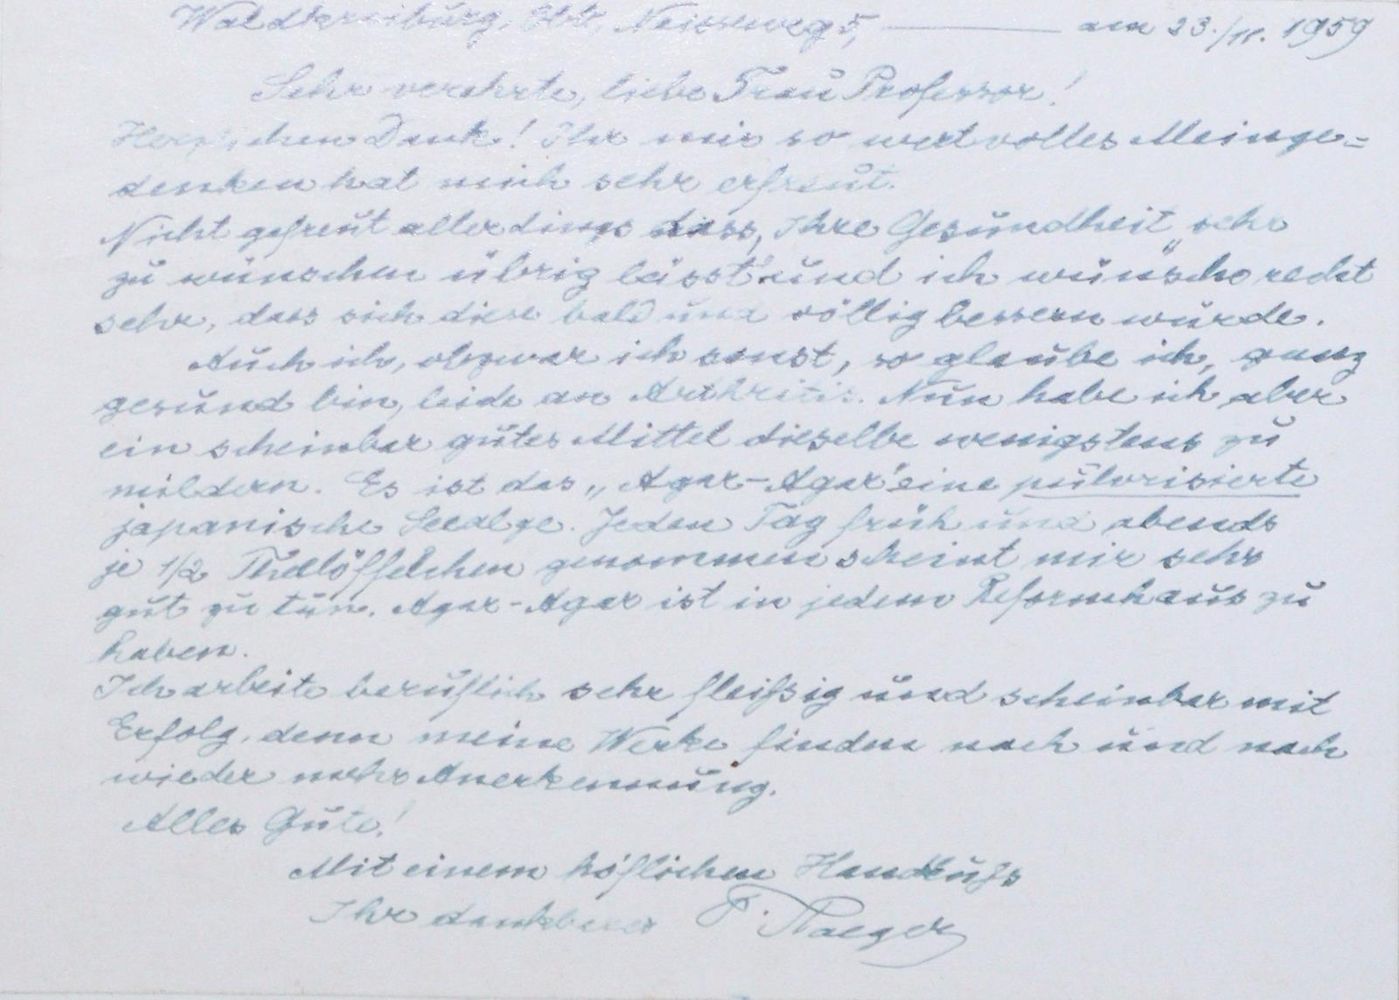 Waldkraiburg, Obb, Neisseweg 5, ——— am 23./11. 1959
Sehr verehrte, liebe Frau Professor!
Herzlichen Dank! Ihr mir so wertvolles Meinge=
denken hat mich sehr erfreut.
Nicht gefreut allerdings dass, Ihre Gesundheit „sehr
zu wünschen übrig lässt" und ich wünsche recht
sehr, dass sich diese bald und völlig bessern würde.
Auch ich, obzwar ich sonst, so glaube ich, ganz
gesund bin, leide an Arthritis. Nun habe ich aber
ein scheinbar gutes Mittel dieselbe wenigstens zu
mildern. Es ist das „Agar-Agar" eine pulvrisierte
japanische Seealge. Jeden Tag früh und abends
je 1/2 Theelöffelchen genommen scheint mir sehr
gut zu tun. Agar-Agar ist in jedem Reformhaus zu
haben.
Ich arbeite beruflich sehr fleißig und scheinbar mit
Erfolg, denn meine Werke finden nach und nach
wieder mehr Anerkennung.
Alles Gute!
Mit einem höflichen Handkuß
Ihr dankbarer F. Staeger